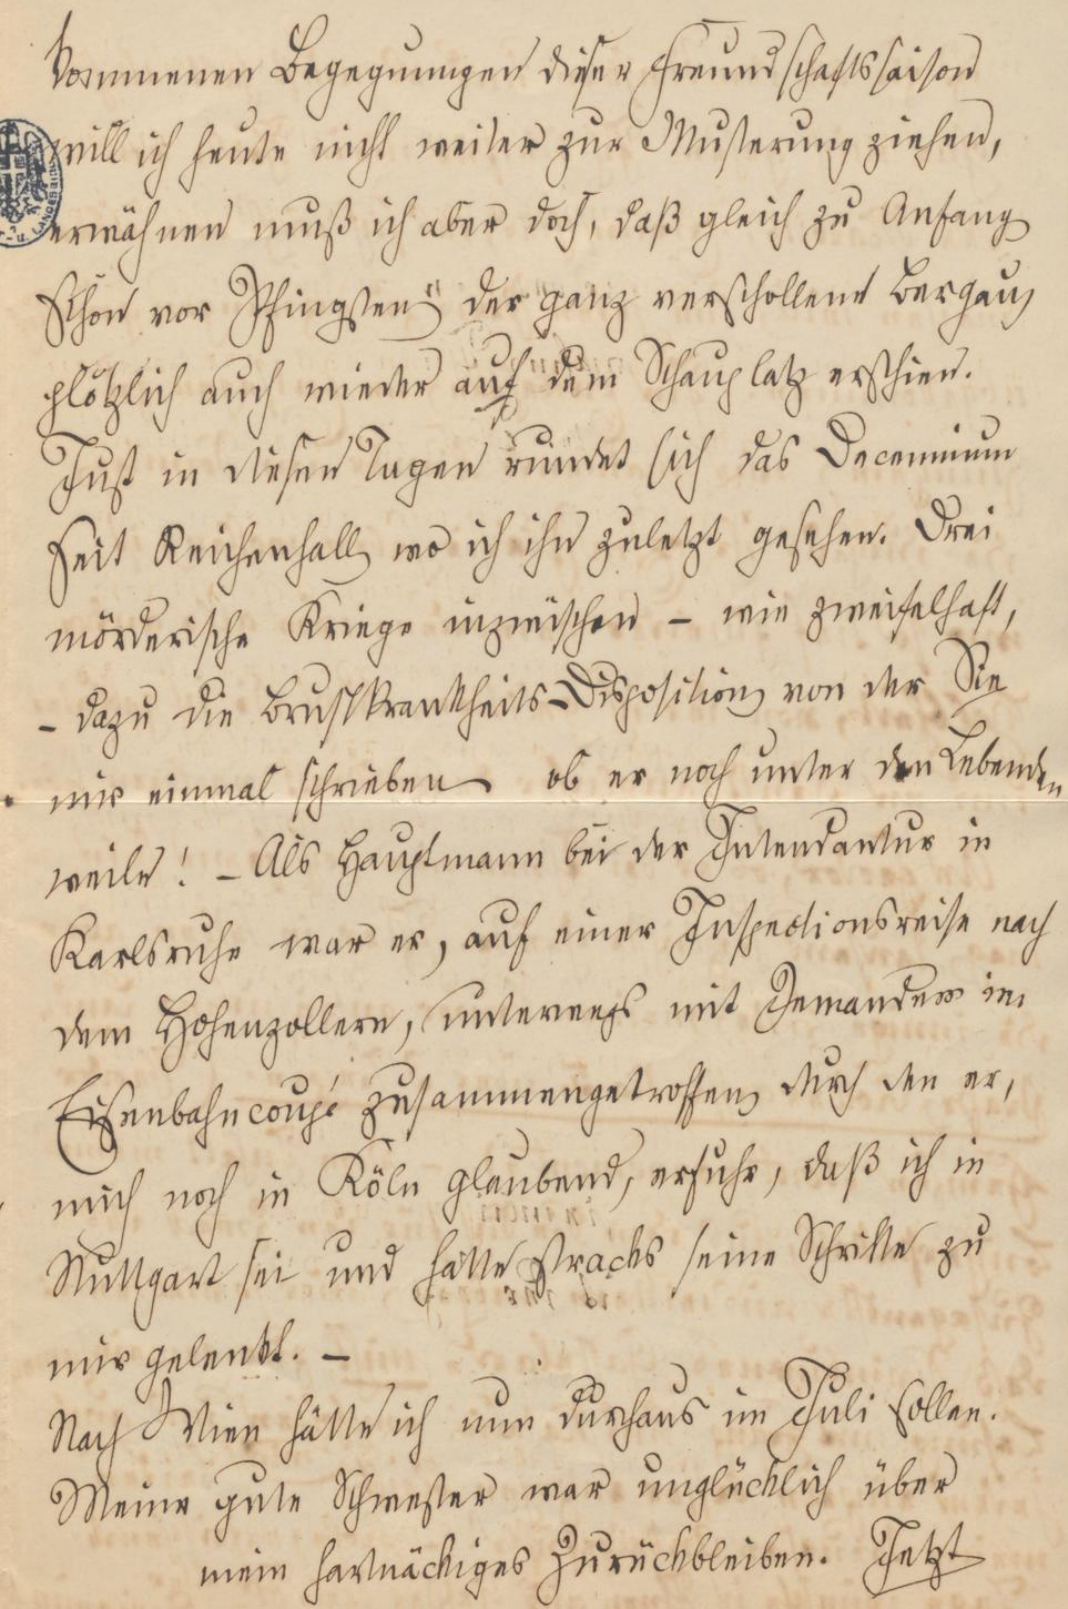 kommenen Begegnungen dieser Freundschaftssaison
will ich heute nicht weiter zur Musterung ziehen,
erwähnen muß ich aber doch, daß gleich zu Anfang
schon vor Pfingsten der ganz verschollene Bergau
plötzlich auch wieder auf dem Schauplatz erschien.
Just in diesen Tagen rundet sich das Decennium
seit Reichenhall wo ich ihn zuletzt gesehen. Drei
mörderische Kriege inzwischen – wie zweifelhaft,
– dazu die Brustkrankheits-Disposition von der Sie
mir einmal schrieben ob er noch unter den Lebenden
weile! – Als Hauptmann bei der Intendantur in
Karlsruhe war er, auf einer Inspectionsreise nach
dem Hohenzollern, unterwegs mit Jemanden im
Eisenbahncoupé zusammengetroffen durch den er,
mich noch in Köln glaubend, erfuhr, daß ich in
Stuttgart sei und hatte stracks seine Schritte zu
mir gelenkt. –
Nach Wien hätte ich nun durchaus im Juli sollen.
Meine gute Schwester war unglücklich über
mein hartnäckiges Zurückbleiben. Jetzt